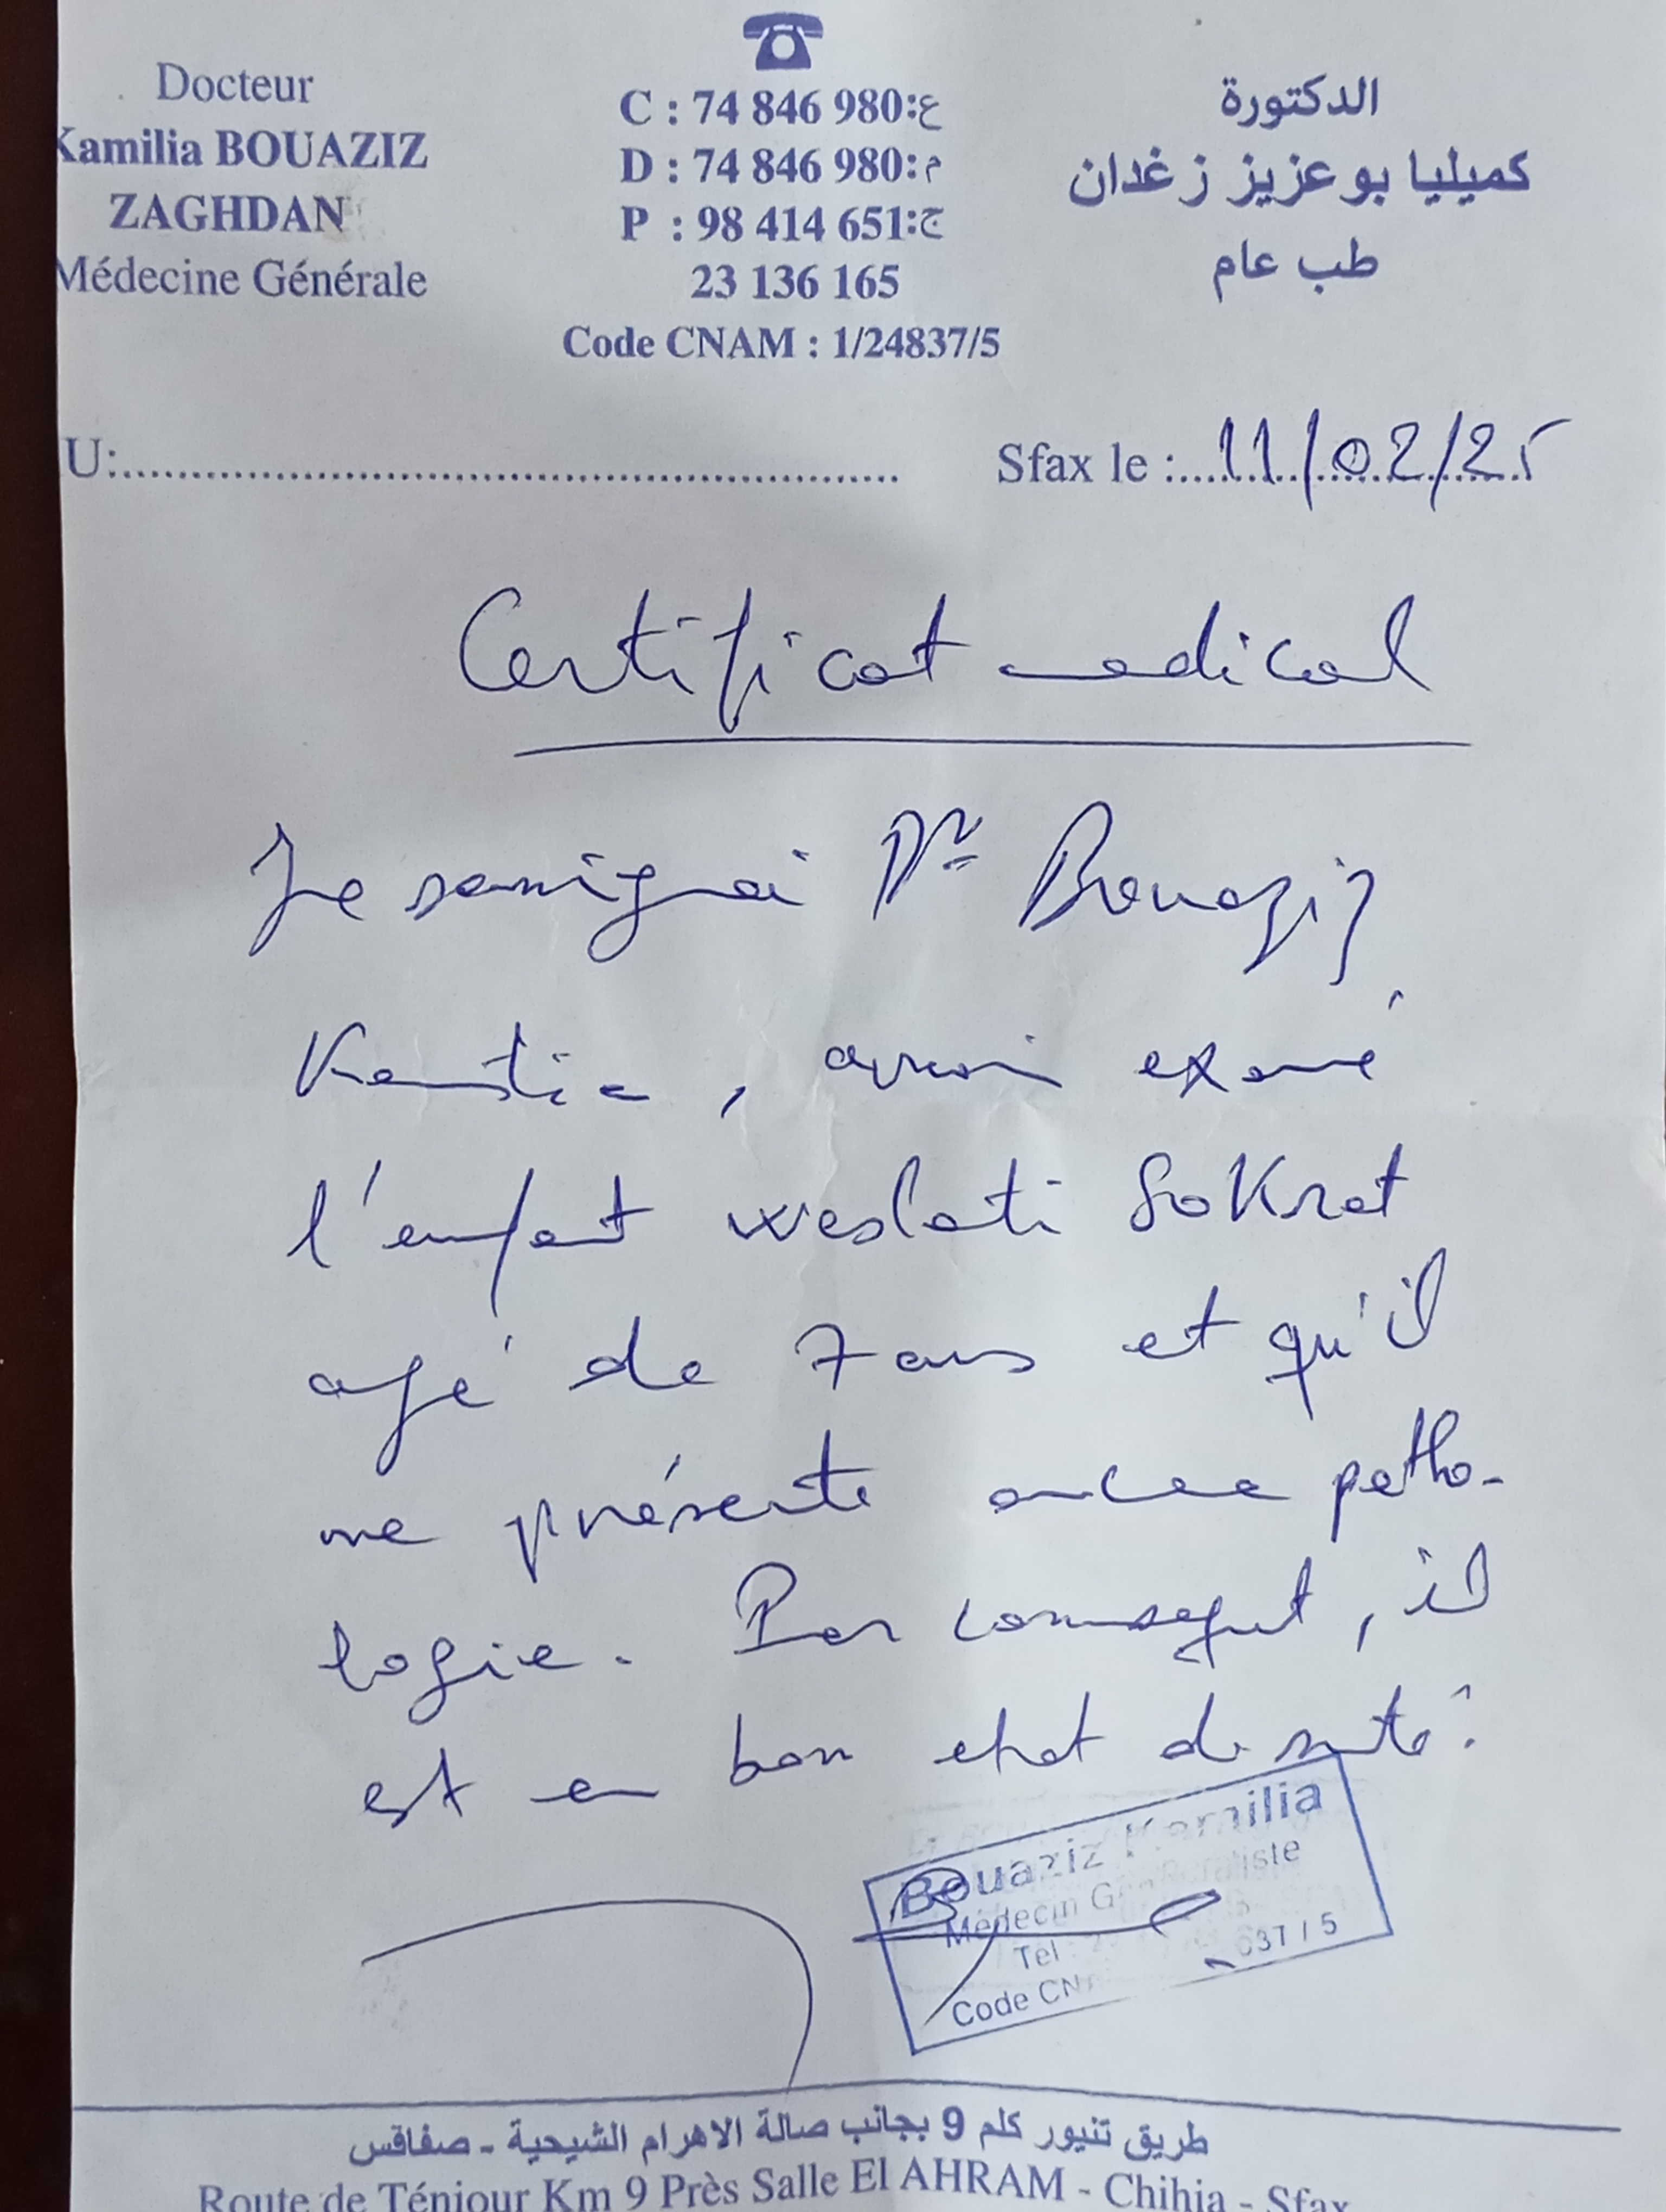 Docteur
Kamilia BOUAZIZ
ZAGHDAN
Médecine Générale
C : 74 846 980:ع
D : 74 846 980:م
P : 98 414 651:ج
23 136 165
Code CNAM : 1/24837/5
الدكتورة
كميليا بوعزيز زغدان
طب عام
U:
Sfax le : 11/02/25
Certificat medical
Je soussigné Dr Bouaziz
Kamilia, avoir examiné
l'enfant weslati Sokrat
agé de 7 ans et qu'il
ne présente aucune patho-
logie. Par conséquent, il
est en bon etat de santé.
Bouaziz Kamilia
Médecin Généraliste
Tel
Code CN 837 / 5
طريق تنيور كلم 9 بجانب صالة الاهرام الشيحية - صفاقس
Route de Téniour Km 9 Près Salle El AHRAM - Chihia - Sfax